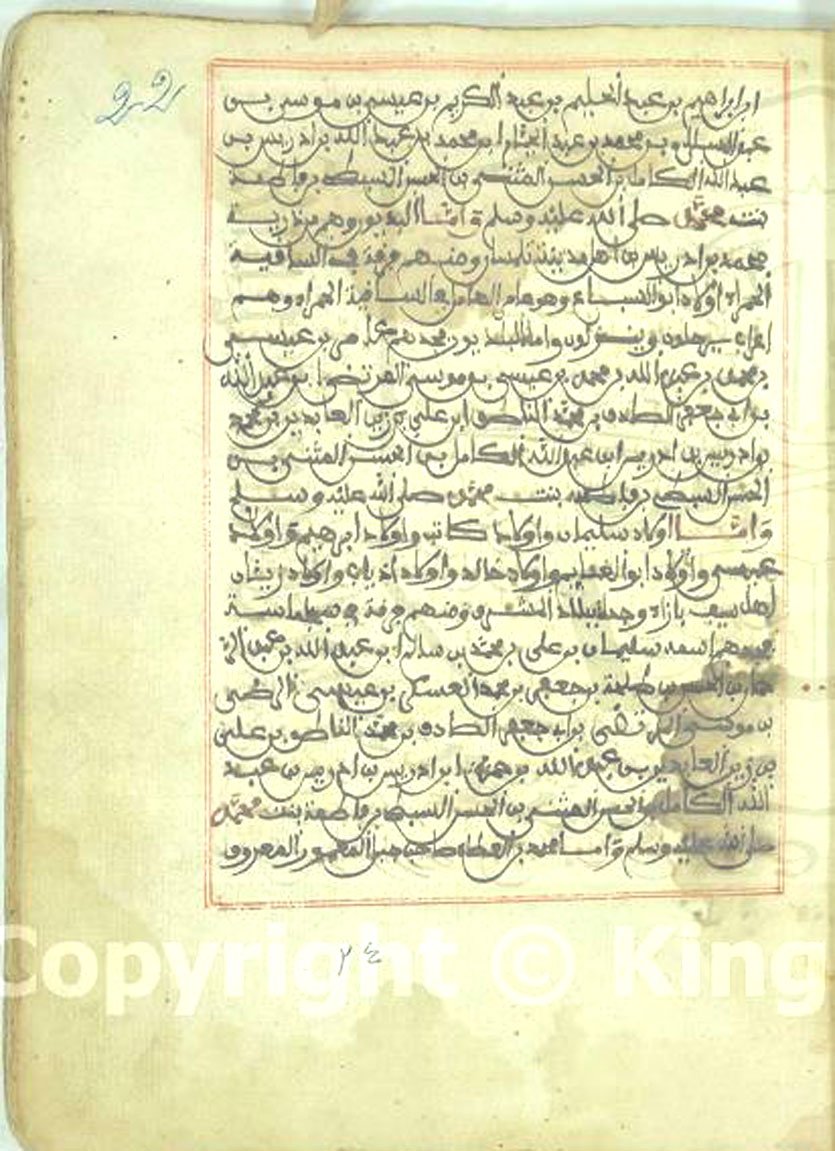 22
ابن ابراهيم بن عبد الحليم بن عبد الكريم بن عيسى بن موسى بن
عبد السلام بن محمد بن عبد الجبار ابن محمد بن عبد الله بن ادريس بن
عبد الله الكامل بن الحسن المثنى بن الحسن السبط بن فاطمة
بنت محمد صلى الله عليه وسلم وامــا البديور وهم من ذرية
محمد بن ادريس بن اهل مدينة تلمسان ومنهم فرقة في السافية
الحمراء اولاد ابو السباع وهو عامر الهامل في السافية الحمراء وهم
اعراب يرحلون وينزلون واما البلديون محمد بن عيسى
بن محمد بن عبد الله بن محمد بن عيسى بن موسى المرتضى ابن عبد الله
بن ابي جعفر الصادق بن محمد الناطق ابن علي بن زين العابدين بن محمد
بن ادريس بن ادريس ابن عبد الله الكامل بن الحسن المثنى بن
الحسن السبط بن فاطمة بنت محمد صلى الله عليه وسلم
وامــا اولاد سليمان واولاد كاتب واولاد ابرهيم واولاد
عيسى واولاد ابو العنايم واولاد خالد واولاد اذياب واولاد زيان
اهل سيف بازاء وجدة ببلاد المشرق ومنهم فرقة في سجلماسة
جدهم اسمه سليمان بن علي بن محمد بن سالم ابن عبد الله بن عبد
بن الحسن بن طلحة بن جعفر بن محمد العسكري بن عيسى الرضى
بن موسى المرتضى بن ابي جعفر الصادق بن محمد الناطق بن علي
بن زين العابدين بن عبد الله بن حمزة ابن ادريس بن ادريس بن عبد
الله الكامل بن الحسن المثنى بن الحسن السبط بن فاطمة بنت محمد
صلى الله عليه وسلم وامــا محمد بن العطاء صاحب جبل المعمور المعروف
٢٤
Copyright © King